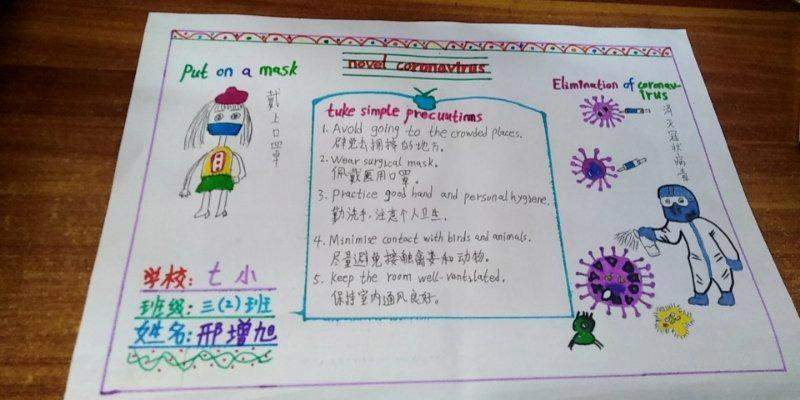 novel coronavirus
Put on a mask
戴上口罩
Elimination of coronav-
irus
消灭冠状病毒
tuke simple precuutions
1. Avoid going to the crowded places.
避免去拥挤的地方.
2. Wear surgical mask.
佩戴医用口罩.
3. Practice good hand and personal hygiene.
勤洗手,注意个人卫生.
4. Minimise contact with birds and animals.
尽量避免接触禽类和动物.
5. Keep the room well-ventilated.
保持室内通风良好.
学校: 七小
班级: 三(2)班
姓名: 邢增旭